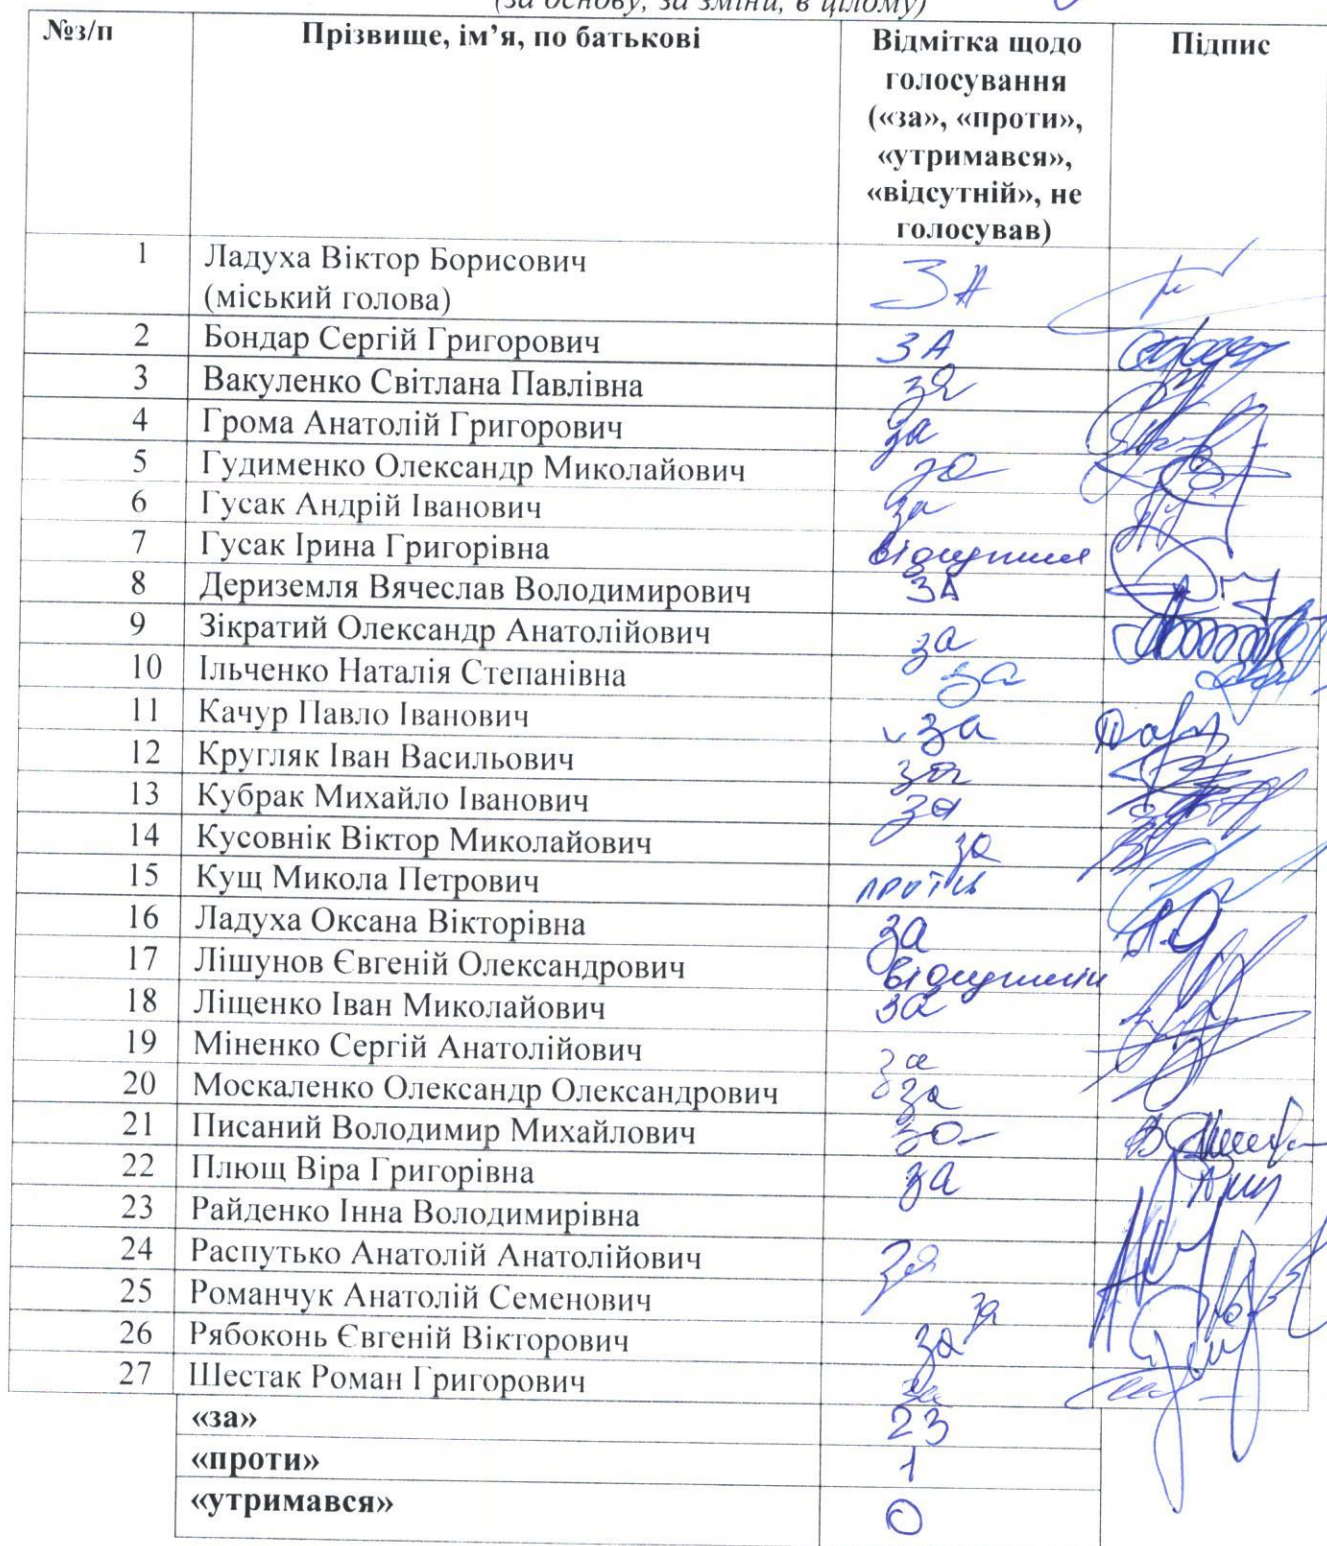 (за основу, за зміни, в цілому)
№з/п Прізвище, ім’я, по батькові Відмітка щодо Підпис
голосування
(«за», «проти»,
«утримався»,
«відсутній», не
голосував)
1 Ладуха Віктор Борисович
(міський голова) ЗА
2 Бондар Сергій Григорович ЗА
3 Вакуленко Світлана Павлівна за
4 Грома Анатолій Григорович за
5 Гудименко Олександр Миколайович за
6 Гусак Андрій Іванович за
7 Гусак Ірина Григорівна відсутня
8 Дериземля Вячеслав Володимирович ЗА
9 Зікратий Олександр Анатолійович за
10 Ільченко Наталія Степанівна за
11 Качур Павло Іванович за
12 Кругляк Іван Васильович за
13 Кубрак Михайло Іванович за
14 Кусовнік Віктор Миколайович за
15 Кущ Микола Петрович проти
16 Ладуха Оксана Вікторівна за
17 Лішунов Євгеній Олександрович відсутній
18 Ліщенко Іван Миколайович за
19 Міненко Сергій Анатолійович за
20 Москаленко Олександр Олександрович за
21 Писаний Володимир Михайлович за
22 Плющ Віра Григорівна за
23 Райденко Інна Володимирівна
24 Распутько Анатолій Анатолійович за
25 Романчук Анатолій Семенович за
26 Рябоконь Євгеній Вікторович за
27 Шестак Роман Григорович за
«за» 23
«проти» 1
«утримався» 0